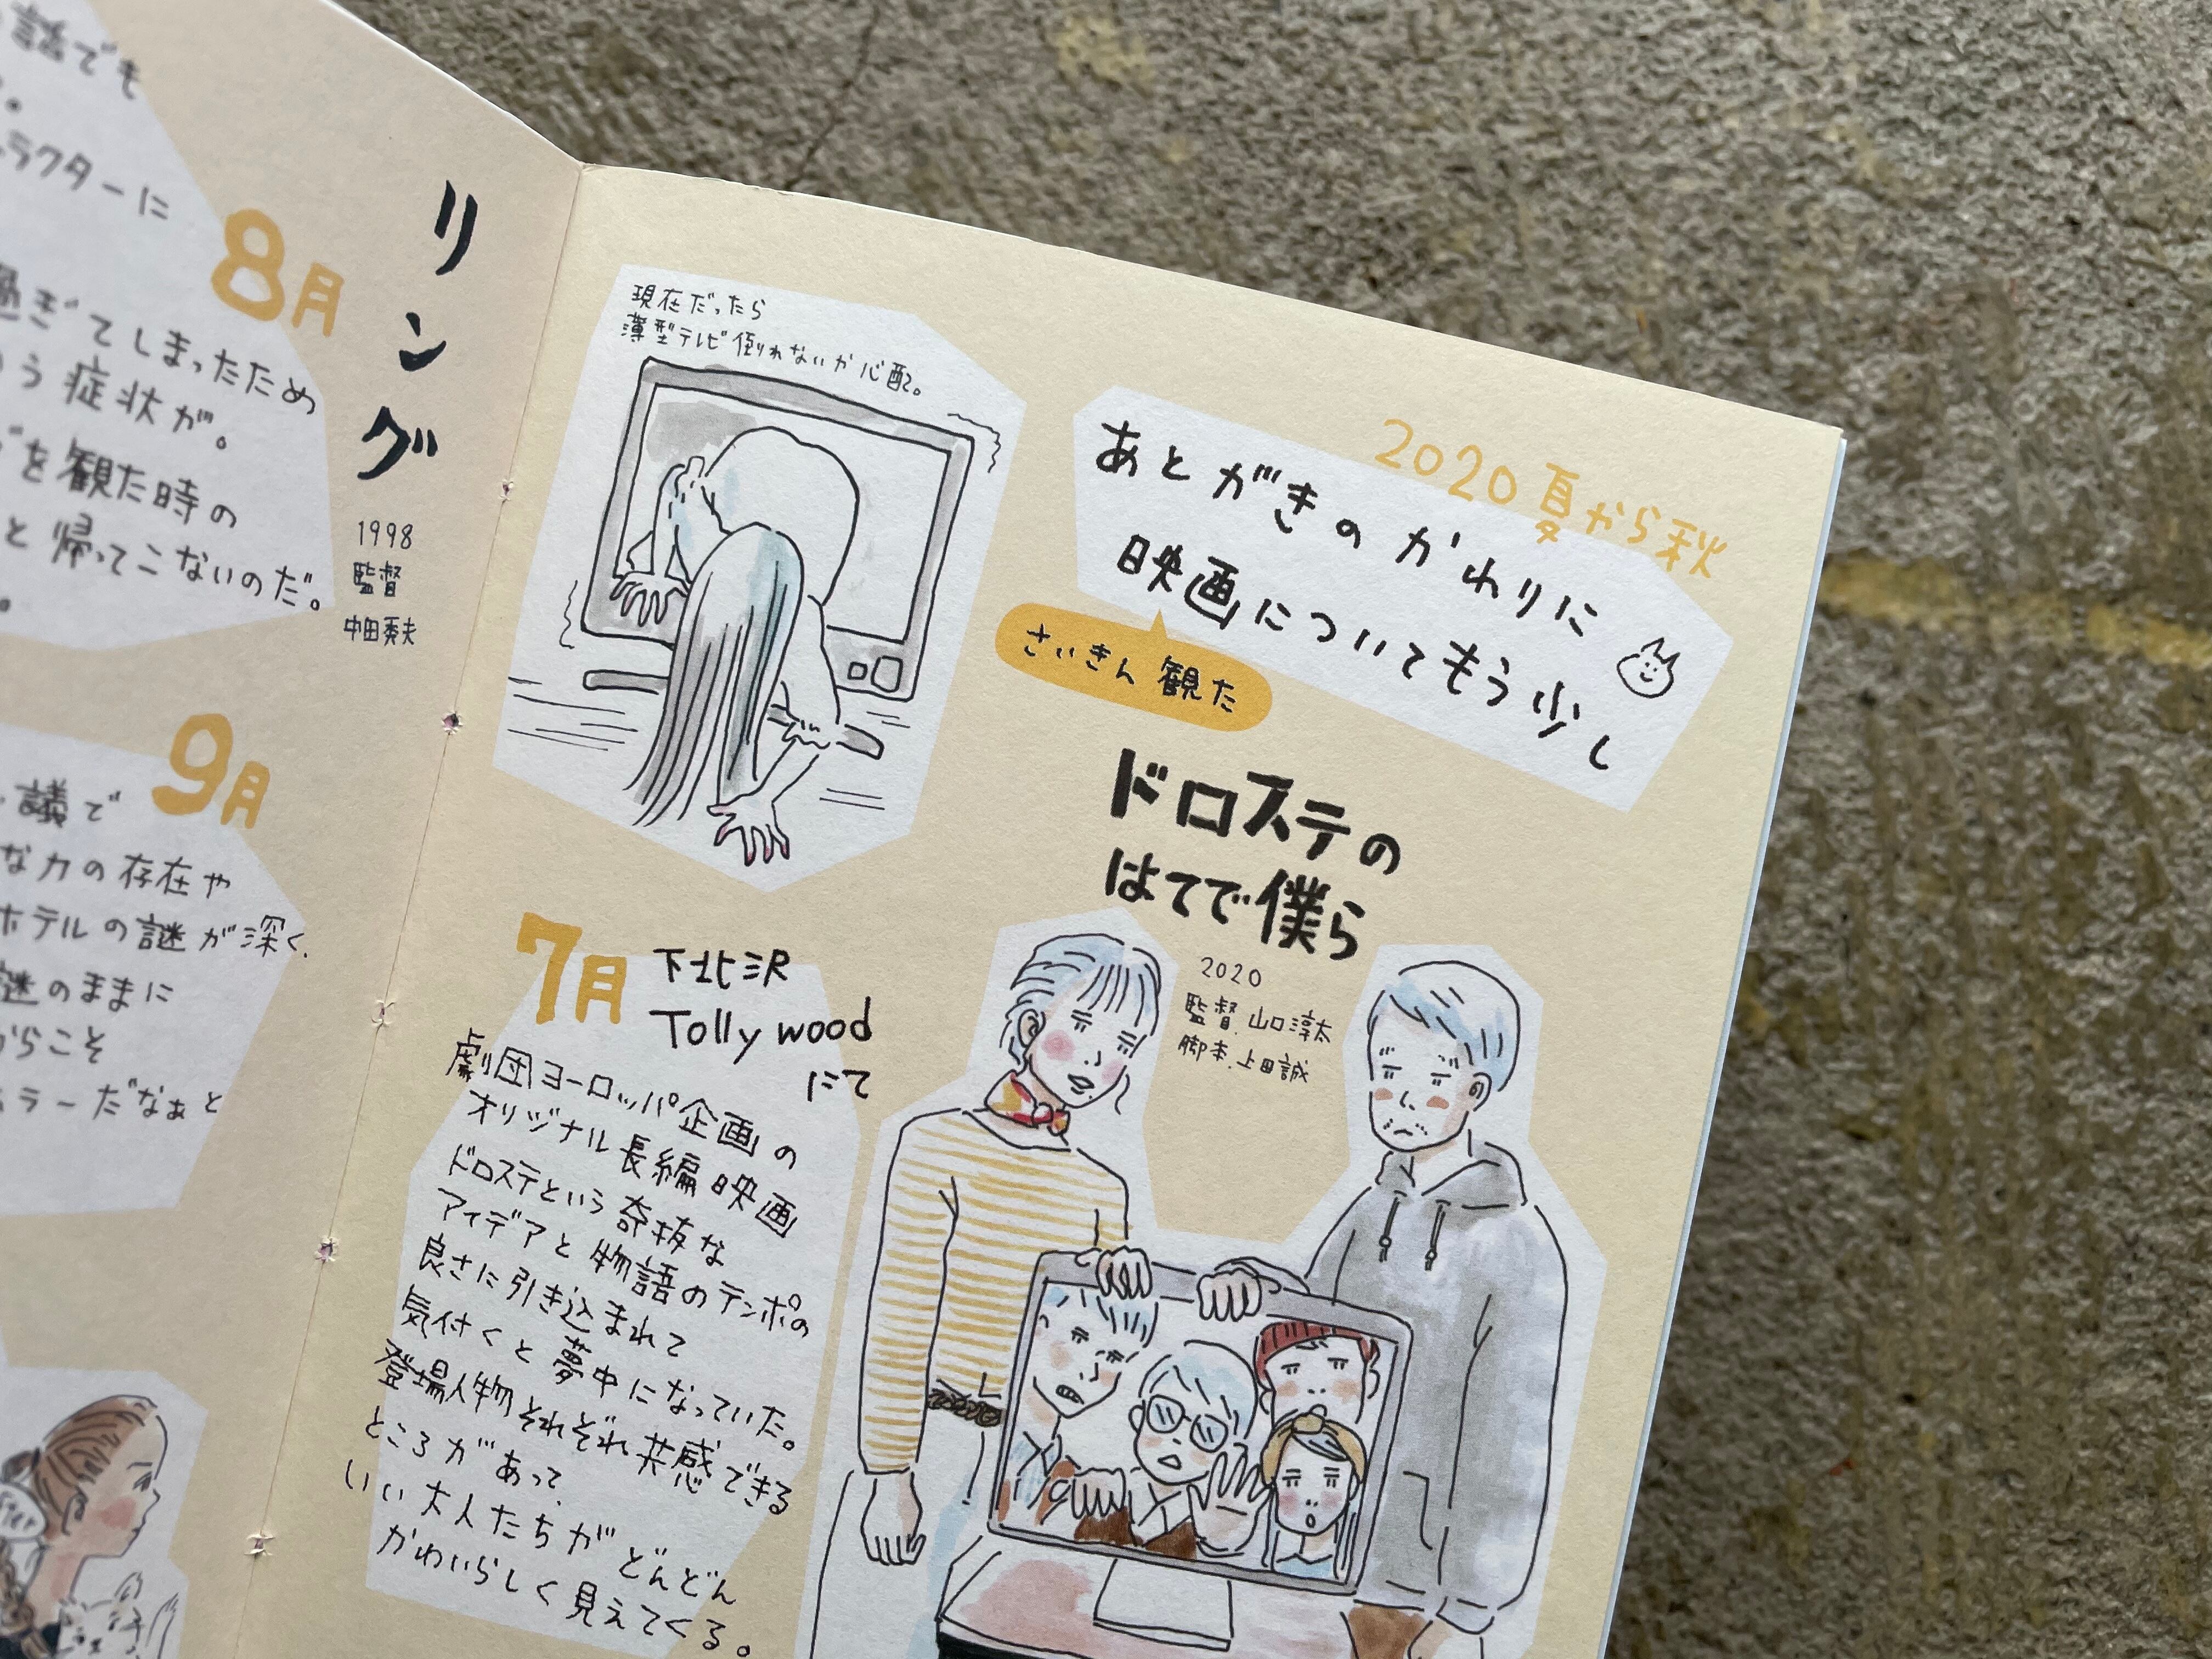 話でも
ラクターに
8月
過ぎてしまったため
う症状が。
を観た時の
と帰ってこないのだ。
リング
1998
監督
中田秀夫
9月
議で
な力の存在や
ホテルの謎が深く、
謎のままに
からこそ
ラーだなぁと
現在だったら
薄型テレビ倒れないか心配。
2020夏から秋
あとがきのかわりに
映画についてもう少し
さいきん観た
ドロステの
はてで僕ら
2020
監督.山口淳太
脚本.上田誠
7月
下北沢
Tollywood
にて
劇団ヨーロッパ企画の
オリジナル長編映画
ドロステという奇抜な
アイデアと物語のテンポの
良さに引き込まれて
気付くと夢中になっていた。
登場人物それぞれ共感できる
ところがあって、
いい大人たちがどんどん
かわいらしく見えてくる。